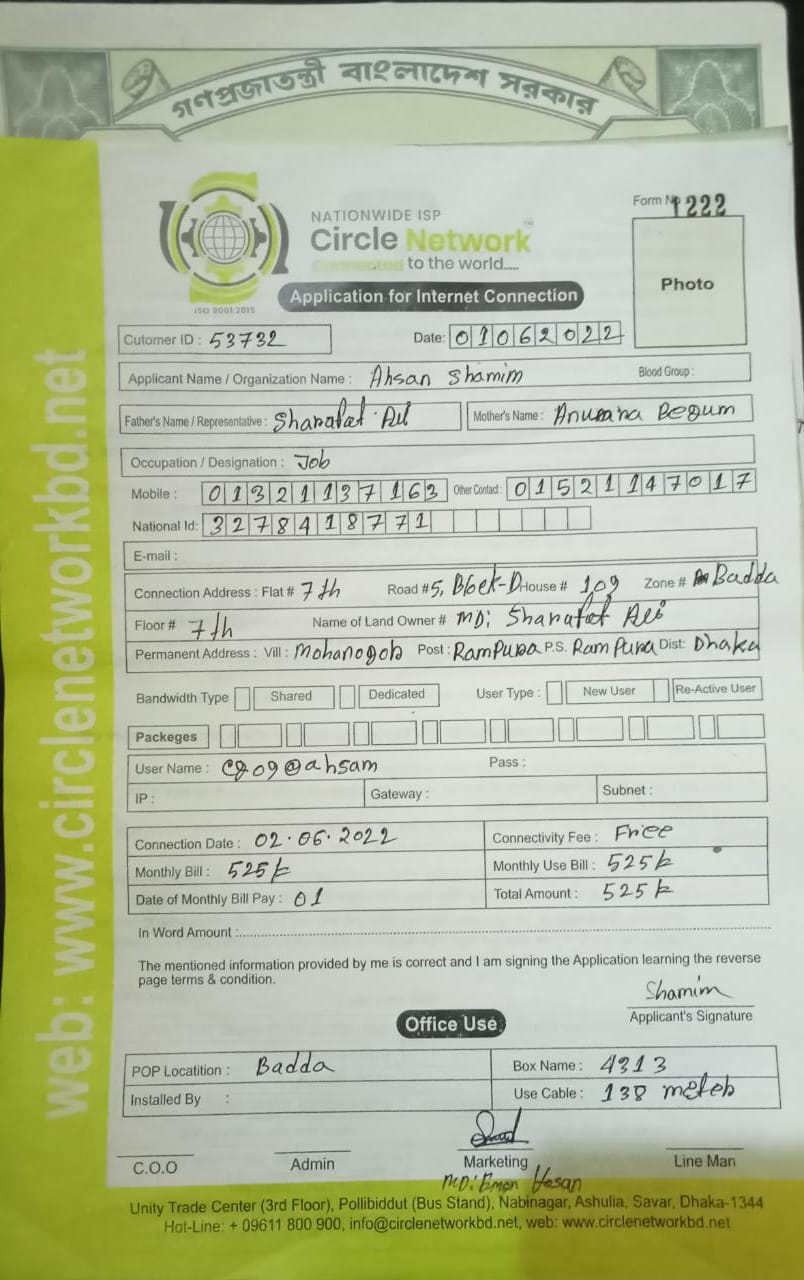 গণপ্রজাতন্ত্রী বাংলাদেশ সরকার
Form No 1222
NATIONWIDE ISP
Circle Network
Connected to the world.....
Photo
ISO 9001:2015
Application for Internet Connection
Cutomer ID : 53732 Date: 01062022
Applicant Name / Organization Name : Ahsan Shamim Blood Group :
Father's Name / Representative : Sharafat Ali Mother's Name : Begum
Occupation / Designation : Job
Mobile : 01321137163 Other Contact : 01521147017
National Id: 3278418771
E-mail :
Connection Address : Flat # 7th Road #5, Block-D House # 109 Zone # Badda
Floor # 7th Name of Land Owner # MD: Sharafat Ali
Permanent Address : Vill : Post : Rampura P.S. Rampura Dist: Dhaka
Bandwidth Type Shared Dedicated User Type : New User Re-Active User
Packeges
User Name : @ahsam Pass :
IP : Gateway : Subnet :
Connection Date : 02.06.2022 Connectivity Fee : Free
Monthly Bill : 525 Monthly Use Bill : 525
Date of Monthly Bill Pay : 01 Total Amount : 525
In Word Amount :
The mentioned information provided by me is correct and I am signing the Application learning the reverse
page terms & condition.
Shamim
Applicant's Signature
Office Use
POP Locatition : Badda Box Name : 4313
Installed By : Use Cable : 138 meter
C.O.O Admin Marketing Line Man
MD: Emon Hasan
Unity Trade Center (3rd Floor), Pollibiddut (Bus Stand), Nabinagar, Ashulia, Savar, Dhaka-1344
Hot-Line: + 09611 800 900, info@circlenetworkbd.net, web: www.circlenetworkbd.net
web: www.circlenetworkbd.net